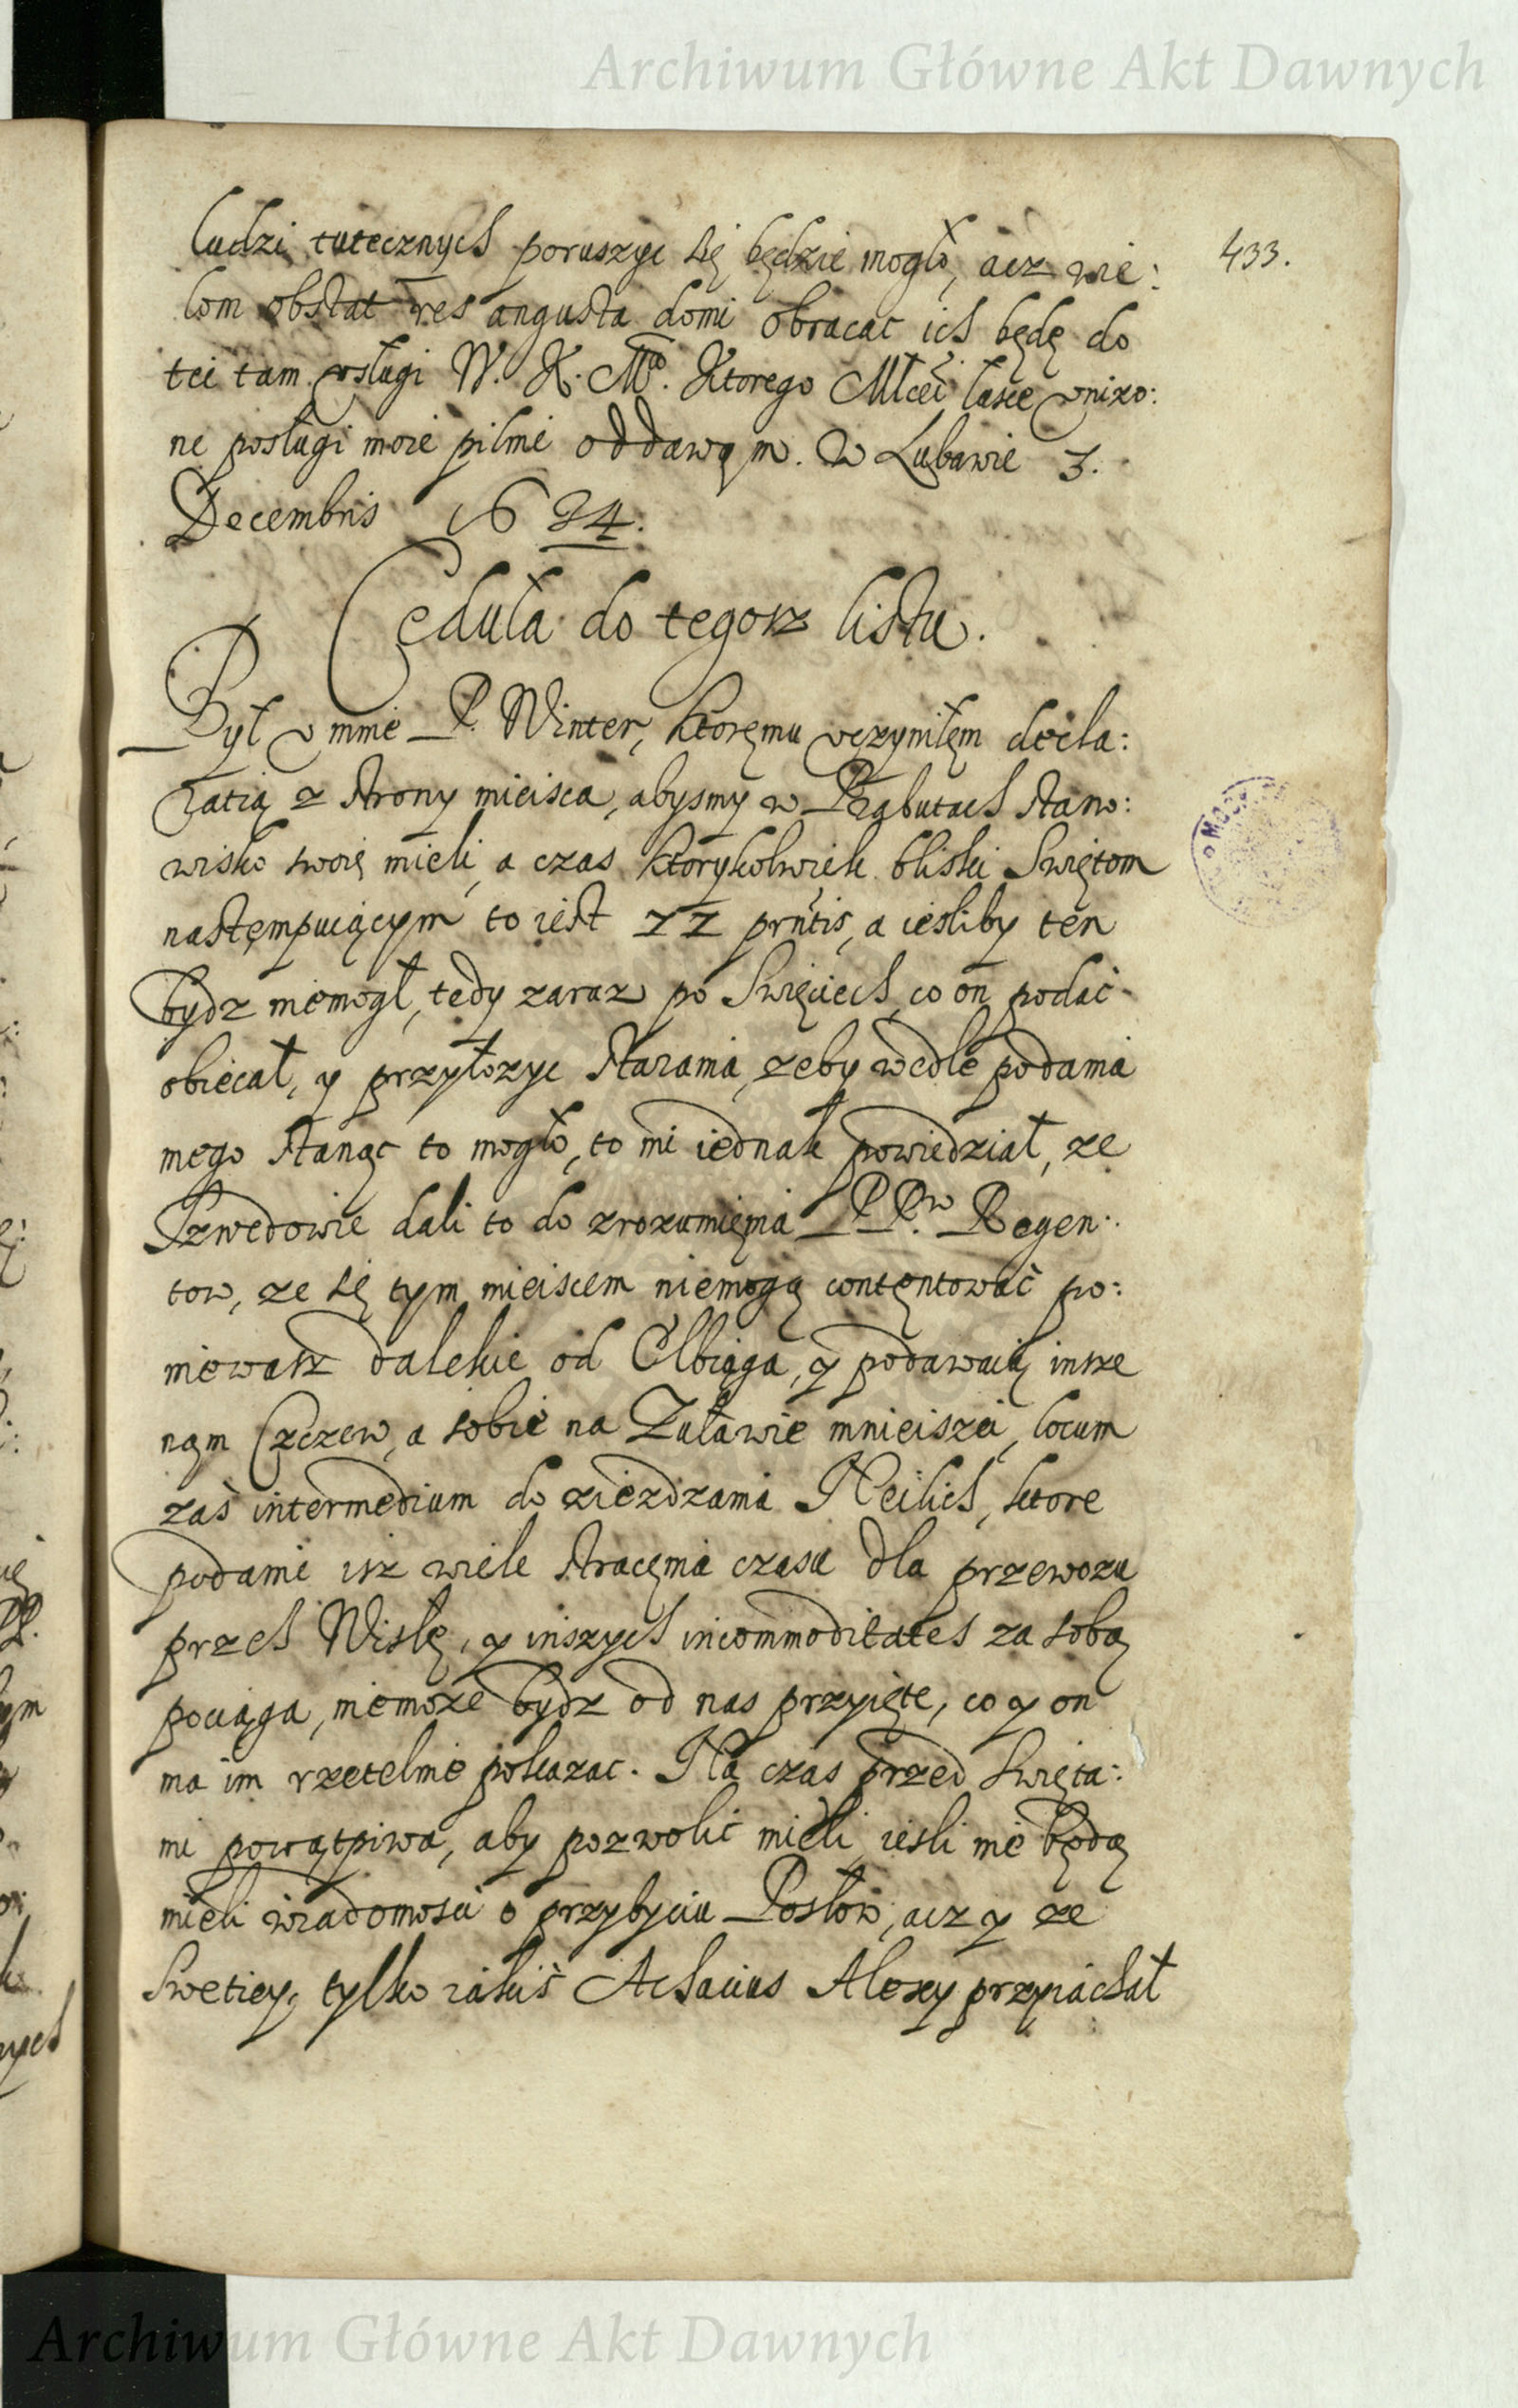 Archiwum Główne Akt Dawnych
433.
ludzi tutecznych poruszyc się będzie mogło, acz wie:
lom obstat res angusta domi obracac ich będę do
tei tam posługi W. K. Mći. Ktorego Młcei łasce vnizo:
ne posługi moie pilnie oddawąm. W Lubawie 3.
Decembris 1634.
Cęduła do tegosz listu.
Był v mnie P. Winter, ktoręmu vczyniłęm decla:
ratią z strony mieisca, abysmy w Prabutach stano:
wisko swoię mieli, a czas ktorykolwięk bliski Swiętom
nastęmpuiącym to iest 22 prntis, a iesliby ten
bydz niemogł, tedy zaraz po Swięciech, co on podać
obiecał, y przyłozyc starania, zeby wedle podania
mego stanąc to mogło, to mi iednak powiedział, ze
Szwedowie dali to do zrozumięnia PP.w Regen:
tow, ze się tym mieiscem niemogą contęntować po:
niewasz dalekie od Elbiąga, y podawaią insze
nąm Czczew, a sobie na Zuławie mnieiszei, locum
zas intermedium do ziezdzania Neilich, ktore
podanie isz wiele stracęnia czasu dla przewozu
przeh Wisłę, y inszych incommoditates za sobą
pociąga, niemoze bydz od nas przyięte, co y on
ma im rzetelnie pokazac. Na czas przed Swięta:
mi powątpiwa, aby pozwolić mieli, iesli nie będą
mieli wiadomosci o przybyciu Posłow, acz y ze
Swetiey, tylko iakiś Achacius Alexy przyiachał
Archiwum Główne Akt Dawnych